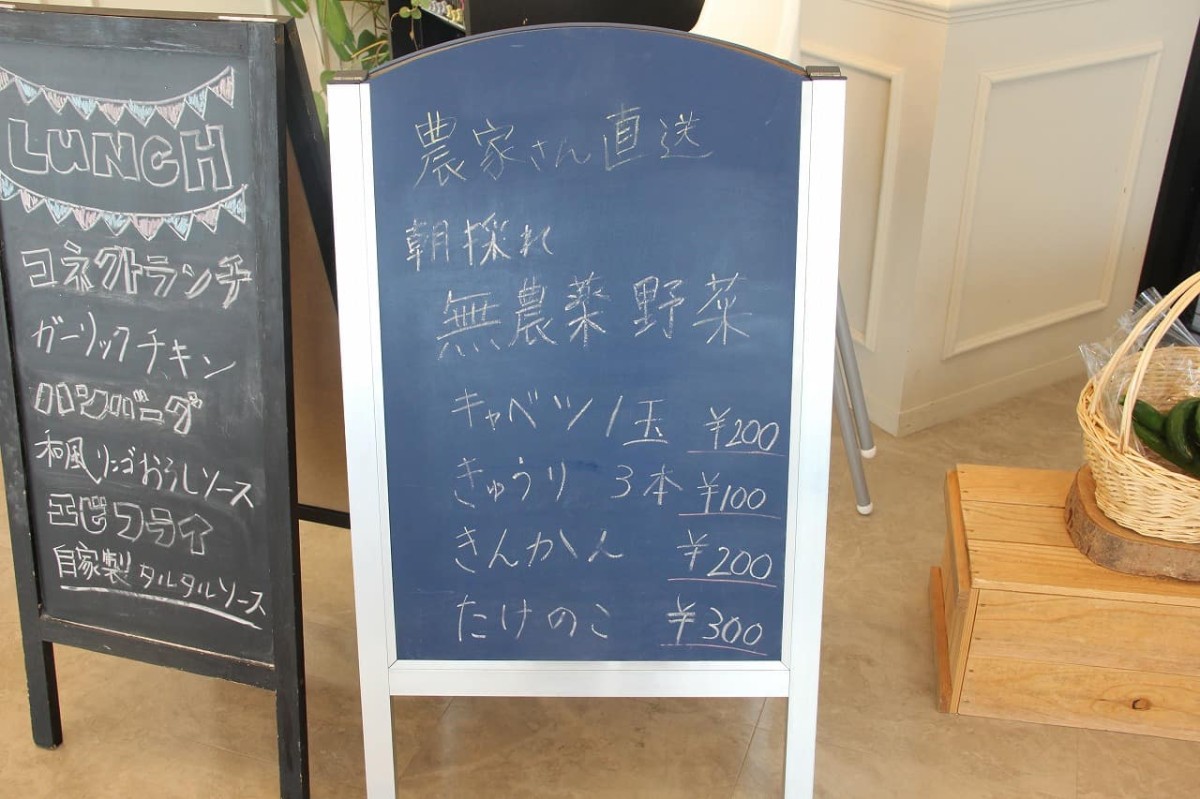 LUNCH
コネクトランチ
ガーリックチキン
ハンバーグ
和風リンゴおろしソース
エビフライ
自家製タルタルソース
農家さん直送
朝採れ
無農薬野菜
キャベツ1玉 ¥200
きゅうり 3本 ¥100
きんかん ¥200
たけのこ ¥300